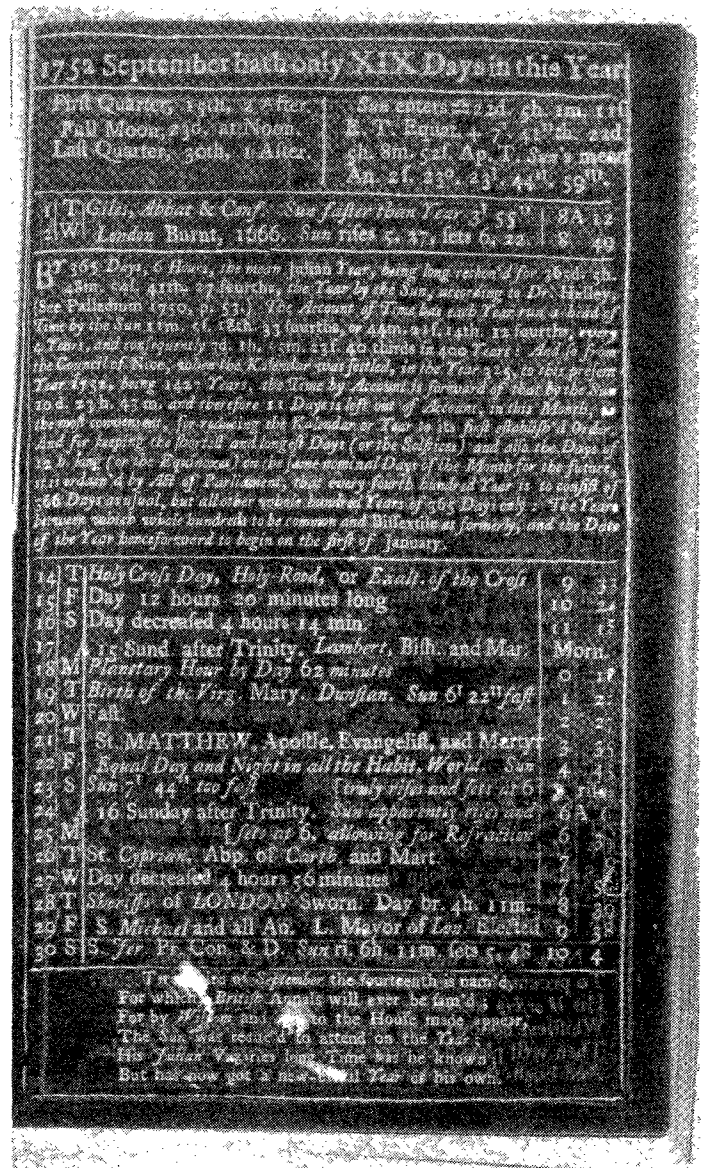 1752 September hath only XIX Days in this Year
First Quarter, 15th, 2 After. Sun enters ♎ 22d. 5h. 1m. 11ſ
Full Moon, 23d. at Noon. E. T. Equat. + 7' 41" th. 22d
Laſt Quarter, 30th, 1 After. 5h. 8m. 52ſ. Ap. T. Sun's mean
An. 2ſ. 23°. 23'. 44". 59"'.
1 T Giles, Abbat & Conf. Sun faſter than Year 3' 55" 8 A 12
2 W London Burnt, 1666. Sun riſes 5. 27, ſets 6. 22. 8 49
BY 365 Days, 6 Hours, the mean Julian Year, being long reckon'd for 365d. 5h.
48m. 54ſ. 41th. 27 fourths, the Year by the Sun, according to Dr. Halley,
(See Palladium 1750, p. 53.) The Account of Time has each Year run a-head of
Time by the Sun 11m. 5ſ. 18th. 33 fourths, or 44m. 21ſ. 14th. 12 fourths, every
4 Years, and conſequently 3d. 1h. 55m. 23ſ. 40 thirds in 400 Years: And ſo from
the Council of Nice, when the Kalendar was ſettled, in the Year 325, to this preſent
Year 1752, being 1427 Years, the Time by Account is forward of that by the Sun
10d. 23h. 43m. and therefore 11 Days is left out of Account, in this Month, as
the moſt convenient, for reducing the Kalendar or Year to its firſt eſtabliſh'd Order
And for keeping the ſhorteſt and longeſt Days (or the Solſtices) and alſo the Days of
12 h. long (or the Equinoxes) on the ſame nominal Days of the Month for the future,
it is ordain'd by Act of Parliament, that every fourth hundred Year is to conſiſt of
366 Days as uſual, but all other whole hundred Years of 365 Days only: The Years
between which whole hundreds to be common and Biſſextile as formerly, and the Date
of the Year henceforward to begin on the firſt of January.
14 T Holy Croſs Day, Holy-Rood, or Exalt. of the Croſs 9 33
15 F Day 12 hours 20 minutes long 10 24
16 S Day decreaſed 4 hours 14 min. 11 15
17 A 15 Sund. after Trinity. Lambert, Biſh. and Mar. Morn.
18 M Planetary Hour by Day 62 minutes 0 18
19 T Birth of the Virg. Mary. Dunſtan. Sun 6' 22" faſt 1 22
20 W Faſt. 2 27
21 T St. MATTHEW, Apoſtle, Evangeliſt, and Martyr 3 35
22 F Equal Day and Night in all the Habit. World. Sun 4 43
23 S Sun 7' 44" too faſt [truly riſes and ſets at 6
24 A 16 Sunday after Trinity. Sun apparently riſes and 6 A
25 M [ſets at 6, allowing for Refraction 6
26 T St. Cyprian, Abp. of Carth. and Mart. 7
27 W Day decreaſed 4 hours 56 minutes 7
28 T Sheriffs of LONDON Sworn. Day br. 4h. 11m. 8 30
29 F S. Michael and all An. L. Mayor of Lon. Elected 9
30 S S. Jer. Pr. Con. & D. Sun ri. 6h. 11m. ſets 5. 48 10 4
of September the fourteenth is nam'd,
For which Britiſh Annals will ever be fam'd;
For by and to the Houſe made appear,
The Sun was reduc'd to attend on the Year;
His Julian Vagaries long Time has he known,
But has now got a new Year of his own.